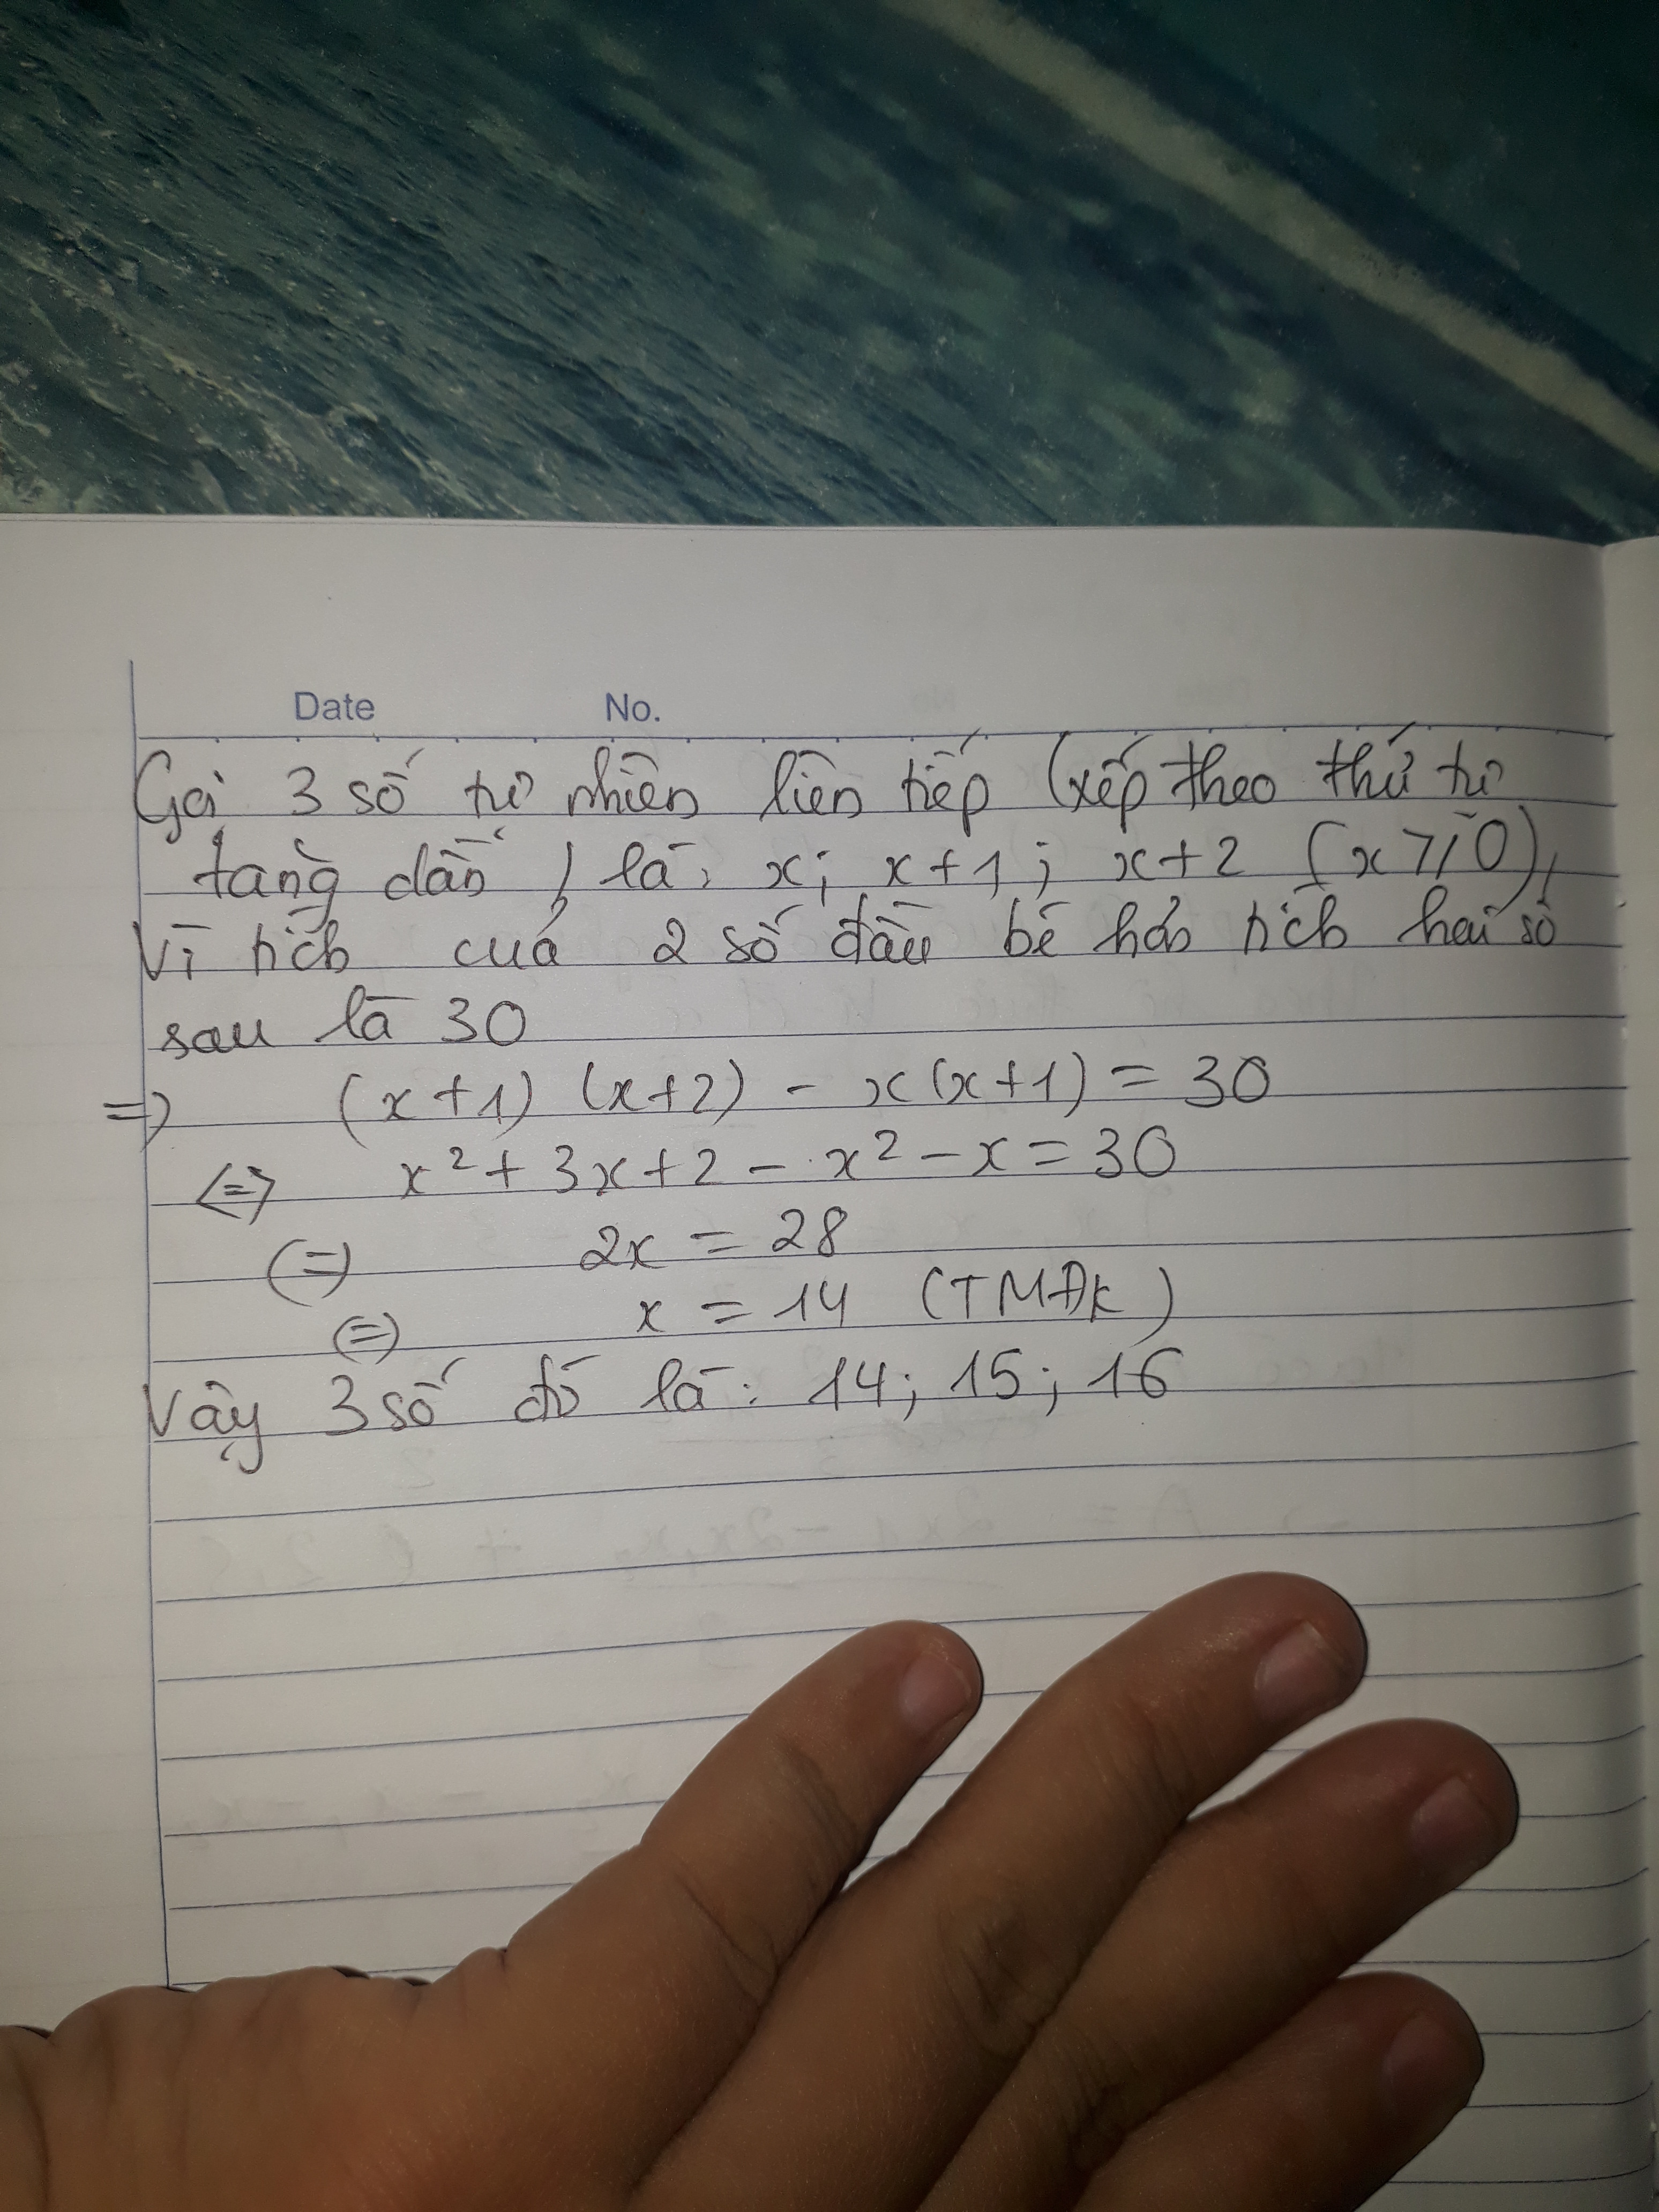 Date No.
Gọi 3 số tự nhiên liên tiếp (xếp theo thứ tự
tăng dần) là: x; x+1; x+2 (x ⩾ 0),
Vì tích của 2 số đầu bé hơn tích hai số
sau là 30
=> (x+1) (x+2) - x(x+1) = 30
<=> x² + 3x + 2 - x² - x = 30
(=) 2x = 28
(=) x = 14 (TMĐK)
Vậy 3 số đó là: 14; 15; 16